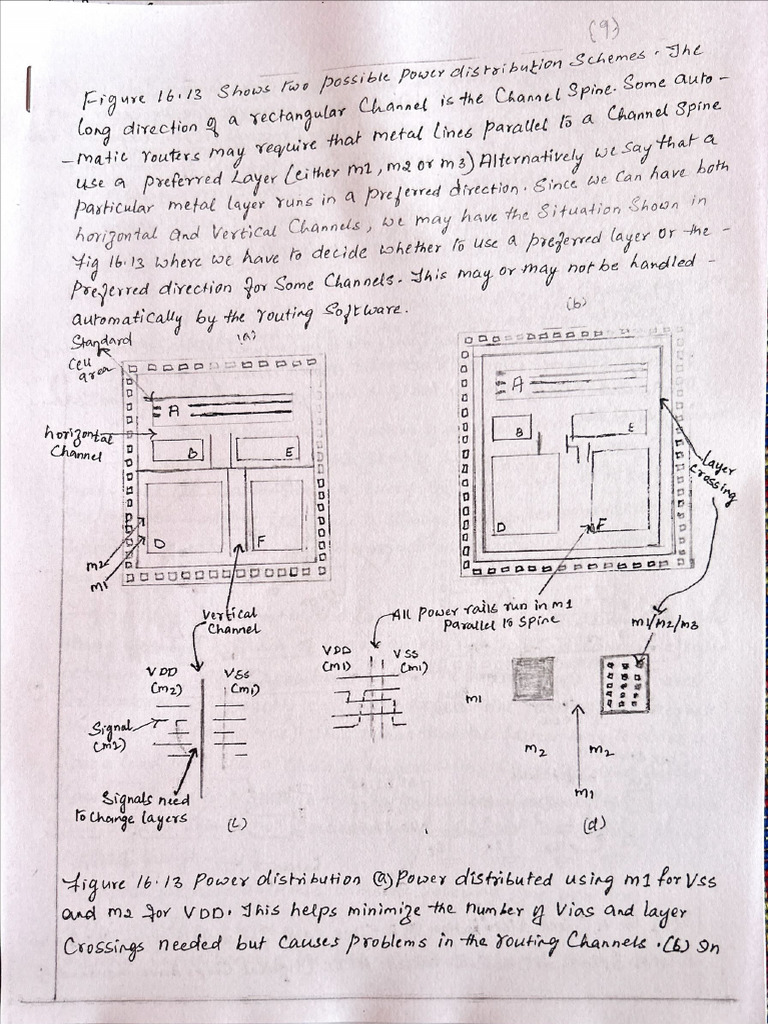 (9)
Figure 16.13 Shows two possible Power distribution Schemes. The
long direction of a rectangular Channel is the Channel Spine. Some auto-
-matic routers may require that metal lines parallel to a Channel Spine
use a preferred Layer (either m1, m2 or m3) Alternatively we say that a
particular metal layer runs in a preferred direction. Since we can have both
horizontal and Vertical Channels, we may have the Situation Shown in
Fig 16.13 where we have to decide whether to use a preferred layer or the -
Preferred direction for Some Channels. This may or may not be handled -
automatically by the routing Software.
(a)
(b)
Standard
Cell
area
A
horizontal
Channel
B
E
D
F
m2
m1
A
B
E
D
F
Layer
Crossing
Vertical
Channel
All Power rails run in m1
Parallel to Spine
m1/m2/m3
VDD
(m2)
VSS
(m1)
Signal
(m2)
Signals need
to change layers
(c)
VDD
(m1)
VSS
(m1)
m1
m2
m2
m1
(d)
Figure 16.13 Power distribution (a) Power distributed using m1 for Vss
and m2 for VDD. This helps minimize the number of Vias and layer
Crossings needed but causes problems in the routing Channels. (b) In